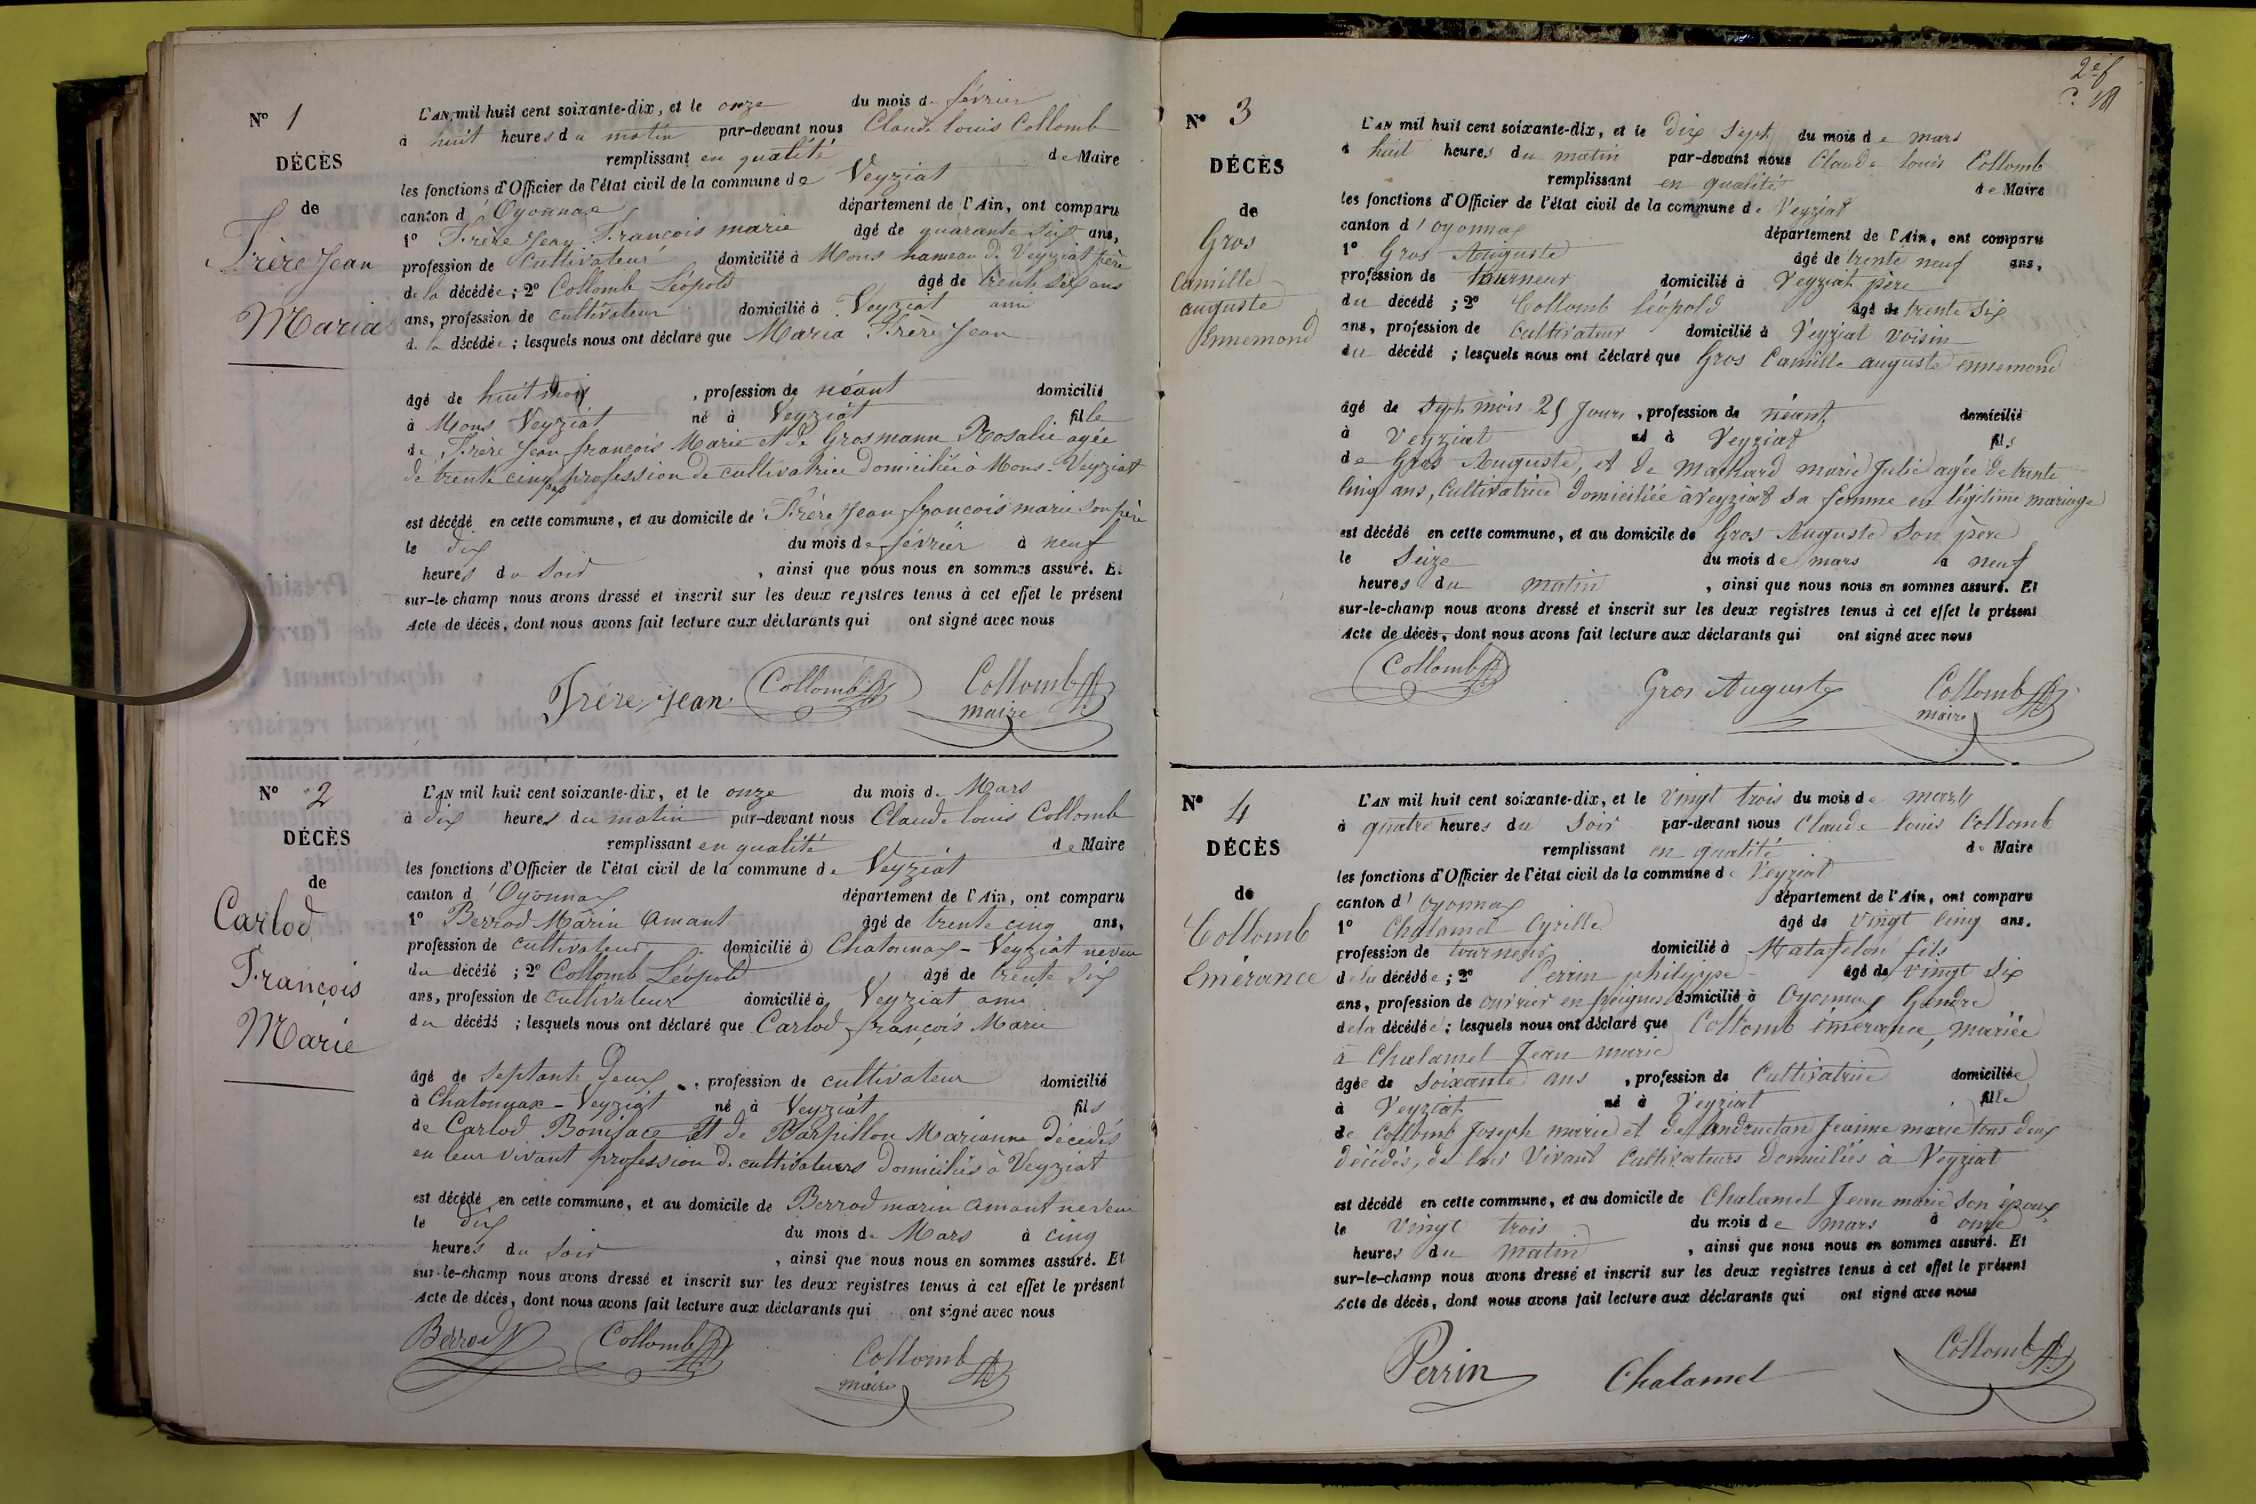 N° 1
DÉCÈS
de
Frère Jean
Maria
L'AN mil huit cent soixante-dix, et le onze du mois de février
à huit heures du matin par-devant nous Claude Louis Collomb
remplissant en qualité de Maire
les fonctions d'Officier de l'état civil de la commune de Veyziat
canton d'Oyonnax département de l'Ain, ont comparu
1° Frère Jean François marie âgé de quarante six ans,
profession de cultivateur domicilié à Mons hameau de Veyziat père
de la décédée ; 2° Collomb Léopold âgé de trente six ans
ans, profession de cultivateur domicilié à Veyziat ami
de la décédée ; lesquels nous ont déclaré que Maria Frère Jean
âgé de huit mois , profession de néant domicilié
à Mons Veyziat né à Veyziat fille
de Frère Jean françois Marie et de Grosmann Rosalie agée
de trente cinq ans profession de cultivatrice domiciliée à Mons-Veyziat
est décédé en cette commune, et au domicile de Frère Jean françois marie son père
le dix du mois de février à neuf
heures du soir , ainsi que nous nous en sommes assuré. Et
sur-le-champ nous avons dressé et inscrit sur les deux registres tenus à cet effet le présent
Acte de décès, dont nous avons fait lecture aux déclarants qui ont signé avec nous
Frère Jean Collomb Collomb
maire
N° 2
DÉCÈS
de
Carlod
François
Marie
L'AN mil huit cent soixante-dix, et le onze du mois de Mars
à dix heures du matin par-devant nous Claude louis Collomb
remplissant en qualité de Maire
les fonctions d'Officier de l'état civil de la commune de Veyziat
canton d'Oyonnax département de l'Ain, ont comparu
1° Berrod Marin Amant âgé de trente cinq ans,
profession de cultivateur domicilié à Chatonnax - Veyziat neveu
du décédé ; 2° Collomb Léopold âgé de trente six
ans, profession de cultivateur domicilié à Veyziat ami
du décédé ; lesquels nous ont déclaré que Carlod françois Marie
âgé de septante deux , profession de cultivateur domicilié
à Chatonnax - Veyziat né à Veyziat fils
de Carlod Boniface et de Parpillon Marianne décédés
en leur vivant profession de cultivateurs domiciliés à Veyziat
est décédé en cette commune, et au domicile de Berrod marin amant neveu
le dix du mois de Mars à cinq
heures du soir , ainsi que nous nous en sommes assuré. Et
sur-le-champ nous avons dressé et inscrit sur les deux registres tenus à cet effet le présent
Acte de décès, dont nous avons fait lecture aux déclarants qui ont signé avec nous
Berrod Collomb Collomb
maire
2e f
N° 3
DÉCÈS
de
Gros
Camille
auguste
Ennemond
L'AN mil huit cent soixante-dix, et le dix sept du mois de mars
à huit heures du matin par-devant nous Claude louis Collomb
remplissant en qualité de Maire
les fonctions d'Officier de l'état civil de la commune de Veyziat
canton d'oyonnax département de l'Ain, ont comparu
1° Gros Auguste âgé de trente neuf ans,
profession de tourneur domicilié à Veyziat père
du décédé ; 2° Collomb léopold âgé de trente six
ans, profession de cultivateur domicilié à Veyziat voisin
du décédé ; lesquels nous ont déclaré que Gros Camille auguste ennemond
âgé de sept mois 25 jours , profession de néant domicilié
à Veyziat né à Veyziat fils
de Gros Auguste, et de Machard marie Julie agée de trente
cinq ans, cultivatrice domiciliée à Veyziat sa femme en légitime mariage
est décédé en cette commune, et au domicile de Gros Auguste son père
le seize du mois de mars à neuf
heures du matin , ainsi que nous nous en sommes assuré. Et
sur-le-champ nous avons dressé et inscrit sur les deux registres tenus à cet effet le présent
Acte de décès, dont nous avons fait lecture aux déclarants qui ont signé avec nous
Collomb Gros Auguste Collomb
maire
N° 4
DÉCÈS
de
Collomb
Emérance
L'AN mil huit cent soixante-dix, et le vingt trois du mois de mars
à quatre heures du soir par-devant nous Claude louis Collomb
remplissant en qualité de Maire
les fonctions d'Officier de l'état civil de la commune de Veyziat
canton d'oyonnax département de l'Ain, ont comparu
1° Chalamel Cyrille âgé de vingt cinq ans.
profession de tourneur domicilié à Matafelon fils
de la décédée ; 2° Perrin philippe âgé de vingt six
ans, profession de ouvrier en peignes domicilié à Oyonnax Gendre
de la décédée ; lesquels nous ont déclaré que Collomb émérance, mariée
à Chalamel Jean marie
âgée de soixante ans , profession de cultivatrice domiciliée
à Veyziat né à Veyziat fille
de Collomb Joseph marie et de Jeanne marie tous deux
décédés, de leur vivant cultivateurs domiciliés à Veyziat
est décédé en cette commune, et au domicile de Chalamel Jean marie son époux
le vingt trois du mois de mars à onze
heures du matin , ainsi que nous nous en sommes assuré. Et
sur-le-champ nous avons dressé et inscrit sur les deux registres tenus à cet effet le présent
Acte de décès, dont nous avons fait lecture aux déclarants qui ont signé avec nous
Perrin Chalamel Collomb